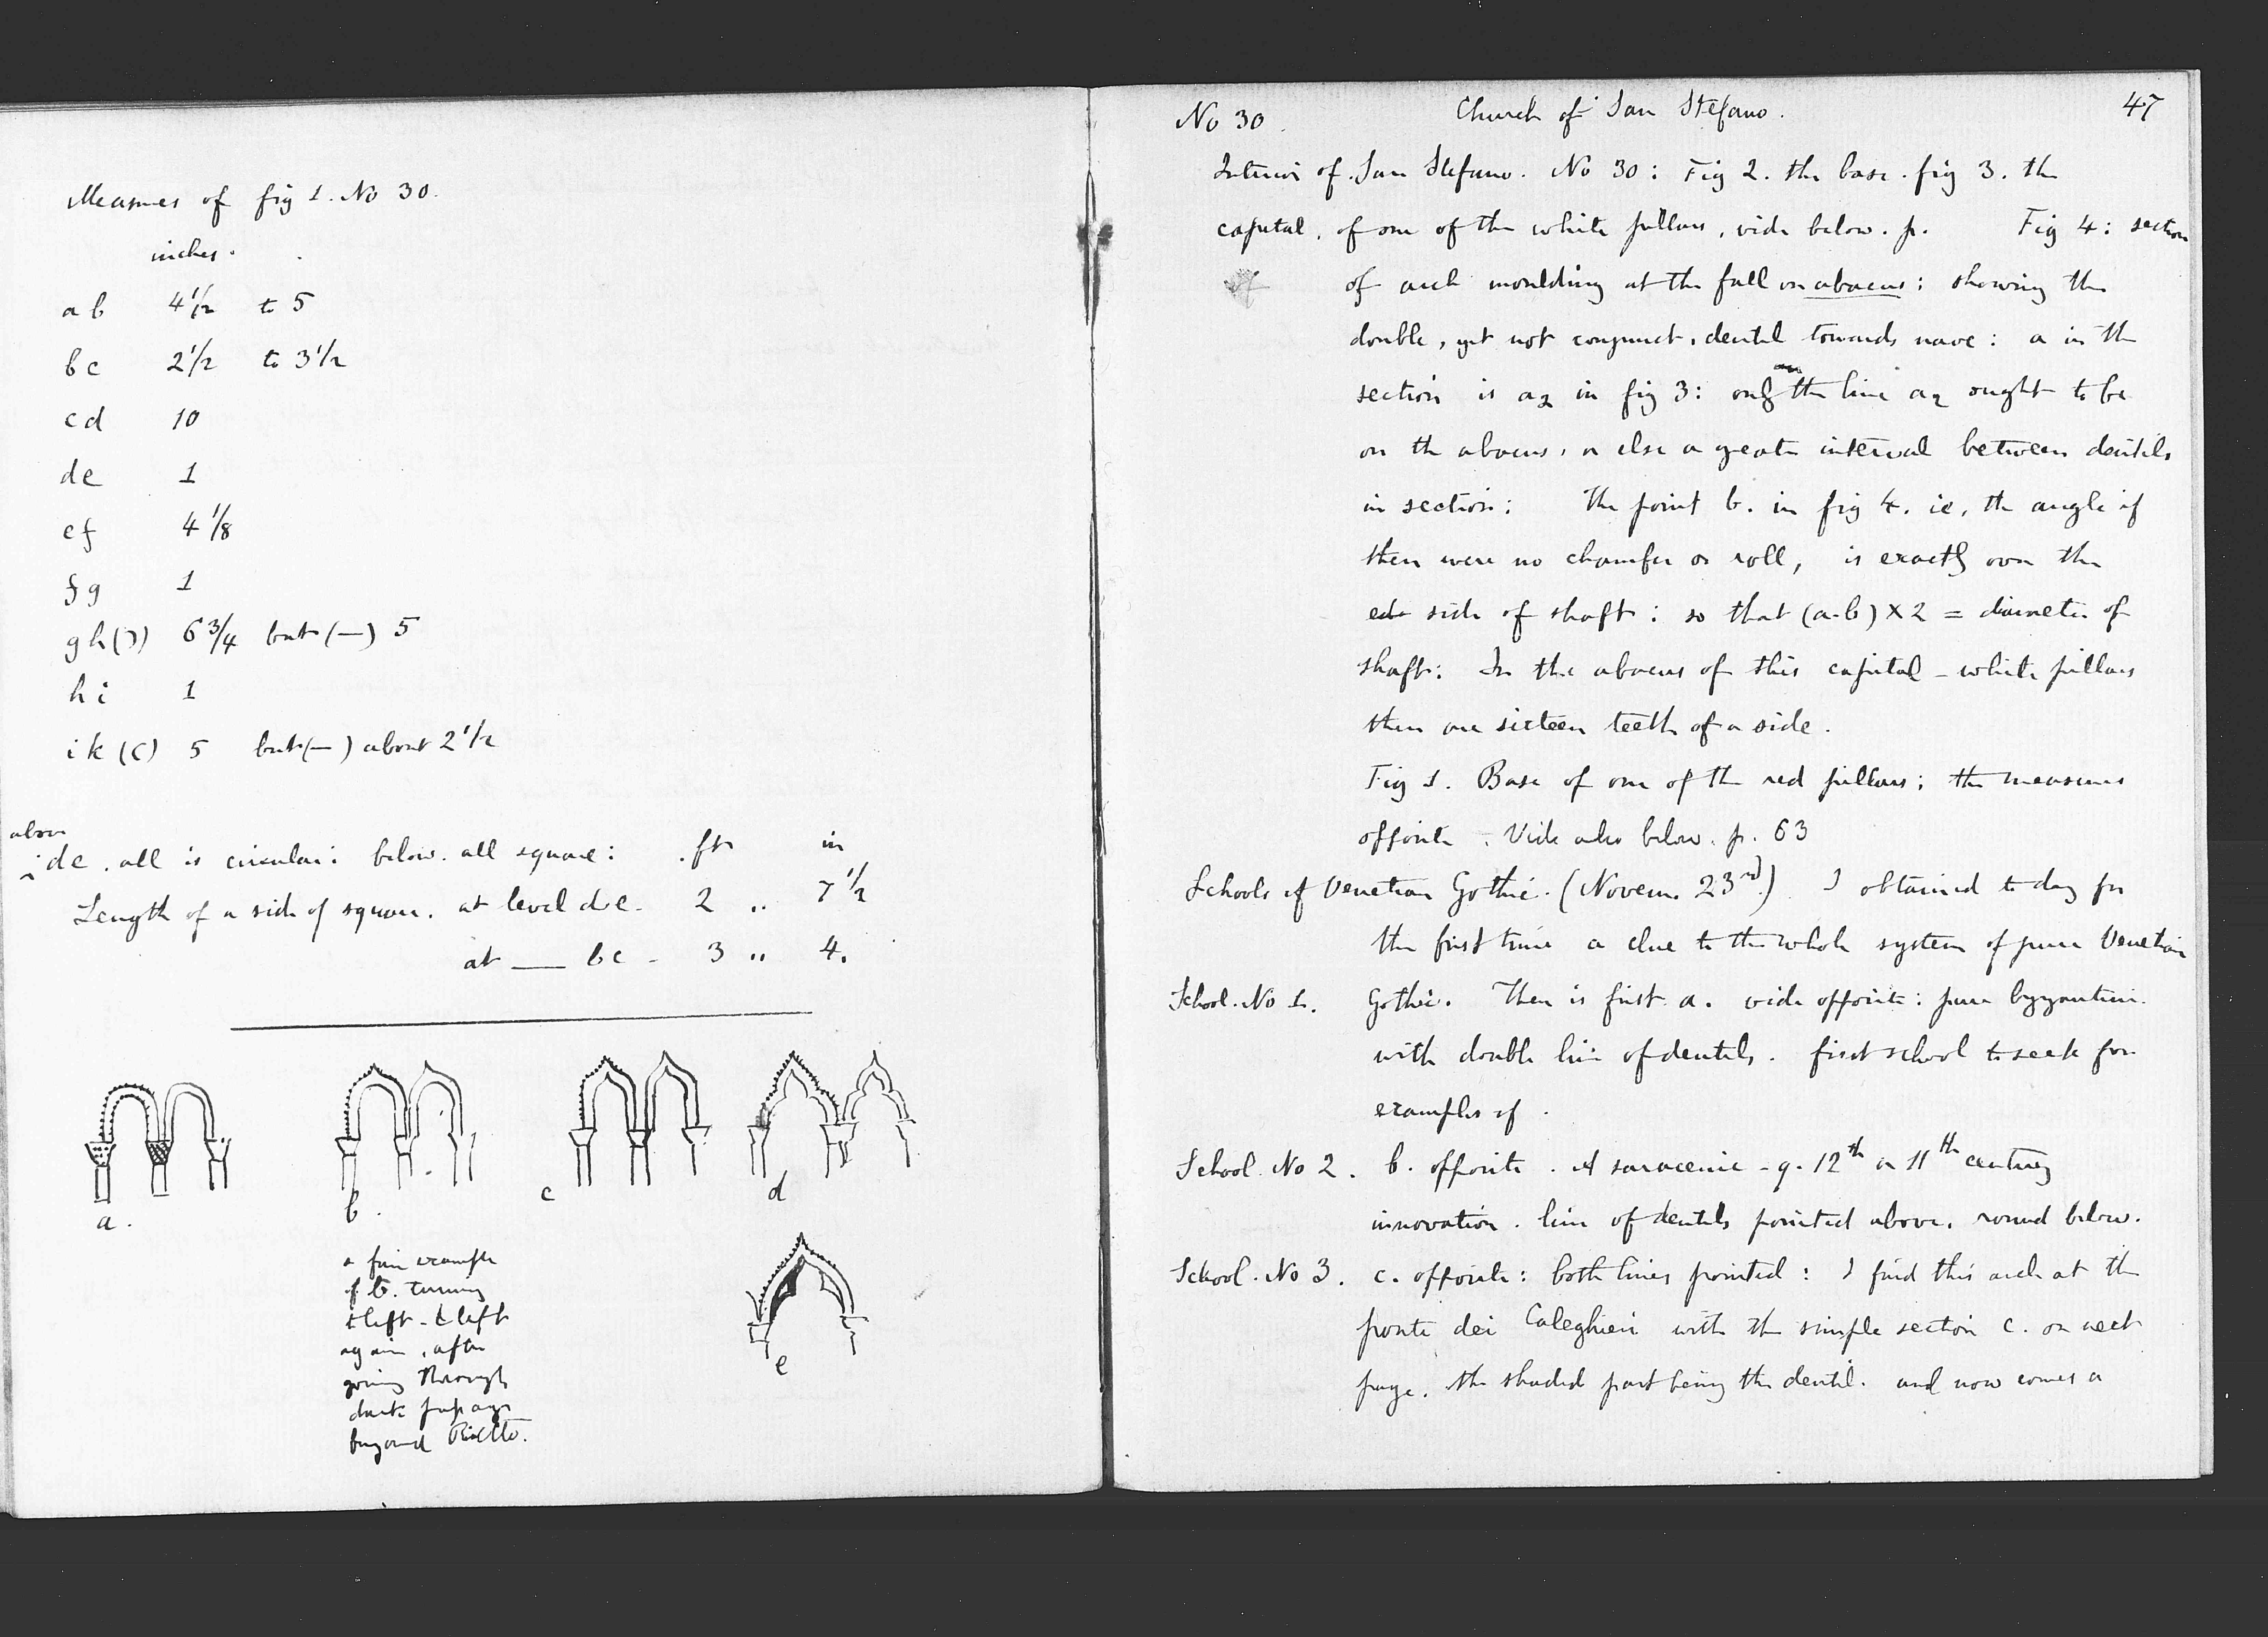 Measures of fig 1. No 30.
inches.
a b 4 1/2 to 5
b c 2 1/2 to 3 1/2
c d 10
d e 1
e f 4 1/8
f g 1
g h ()) 6 3/4 but (—) 5
h i 1
i k (() 5 but (—) about 2 1/2
above
^ de. all is circular: below. all square: ft in
Length of a side of square. at level d e. 2 .. 7 1/2
at —— bc - 3 .. 4.
a.
b.
c
d
a fair example
of b. turning
to left - to left
again, after
going through
dark passage
beyond Rialto.
e
No 30. Church of San Stefano. 47
Interior of San Stefano. No 30: Fig 2. the base. fig 3. the
capital, of one of the white pillars, vide below. p. Fig 4: section
of
of arch moulding at the fall on abacus: showing the
double, yet not conjunct, dentil towards nave: a in the
section is a2 in fig 3: only the line a2 ought to be
on the abacus, or else a greater interval between dentils
in section: The point b. in fig 4. ie, the angle if
there were no chamfer or roll, is exactly over the
side of shaft: so that (a-b) × 2 = diameter of
shaft: In the abacus of this capital - white pillars
there are sixteen teeth of a side.
Fig 1. Base of one of the red pillars; the measures
opposite. Vide also below. p. 63
Schools of Venetian Gothic. (Novem. 23rd.) I obtained to day for
the first time a clue to the whole system of pure Venetian
School. No 1. Gothic. There is first a. vide opposite: pure byzantine.
with double line of dentils. first school to seek for
examples of.
School. No 2. b. opposite. A saracenic - q. 12th or 11th century
innovation. line of dentils pointed above, round below.
School. No 3. c. opposite: both lines pointed: I find this arch at the
ponte dei Caleghieri with the simple section c. on next
page, the shaded part being the dentil. and now comes a